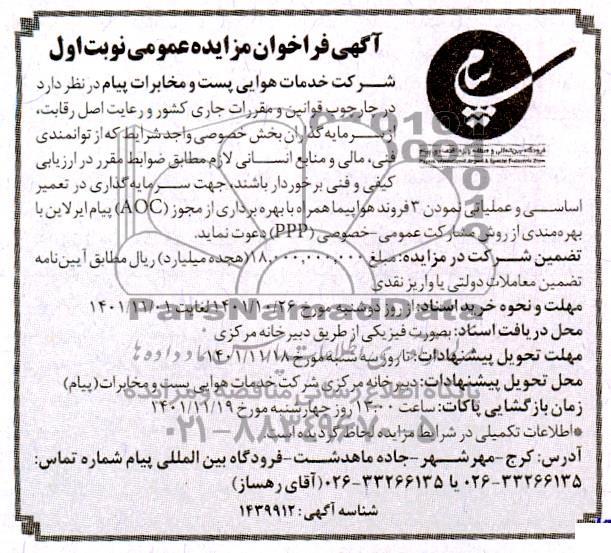 آگهی فراخوان مزایده عمومی نوبت اول
شرکت خدمات هوایی پست و مخابرات پیام در نظر دارد
در چارچوب قوانین و مقررات جاری کشور و رعایت اصل رقابت،
از سرمایه گذاران بخش خصوصی واجد شرایط که از توانمندی
فنی، مالی و منابع انسانی لازم مطابق ضوابط مقرر در ارزیابی
کیفی و فنی برخوردار باشند، جهت سرمایه گذاری در تعمیر
اساسی و عملیاتی نمودن ۳ فروند هواپیما همراه با بهره برداری از مجوز (AOC) پیام ایرلاین با
بهره مندی از روش مشارکت عمومی-خصوصی (PPP) دعوت نماید.
تضمین شرکت در مزایده: مبلغ ۱۸,۰۰۰,۰۰۰,۰۰۰ (هجده میلیارد) ریال مطابق آیین نامه
تضمین معاملات دولتی یا واریز نقدی
مهلت و نحوه خرید اسناد: از روز دوشنبه مورخ ۱۴۰۱/۱۰/۲۶ لغایت ۱۴۰۱/۱۱/۰۱
محل دریافت اسناد: بصورت فیزیکی از طریق دبیرخانه مرکزی
مهلت تحویل پیشنهادات: تا روز سه شنبه مورخ ۱۴۰۱/۱۱/۱۸
محل تحویل پیشنهادات: دبیرخانه مرکزی شرکت خدمات هوایی پست و مخابرات (پیام)
زمان بازگشایی پاکات: ساعت ۱۳:۰۰ روز چهارشنبه مورخ ۱۴۰۱/۱۱/۱۹
*اطلاعات تکمیلی در شرایط مزایده لحاظ گردیده است.
آدرس: کرج-مهرشهر-جاده ماهدشت-فرودگاه بین المللی پیام شماره تماس:
۰۲۶-۳۳۲۶۶۱۳۵ یا ۰۲۶-۳۳۲۶۶۱۳۵ (آقای رهساز)
شناسه آگهی: ۱۴۳۹۹۱۲
پیام
Payam International Airport & Special Economic Zone
ParsNamadData
پایگاه اطلاع رسانی مناقصه و مزایده
۰۲۱-۸۸۳۴۹۶۷۰-۵